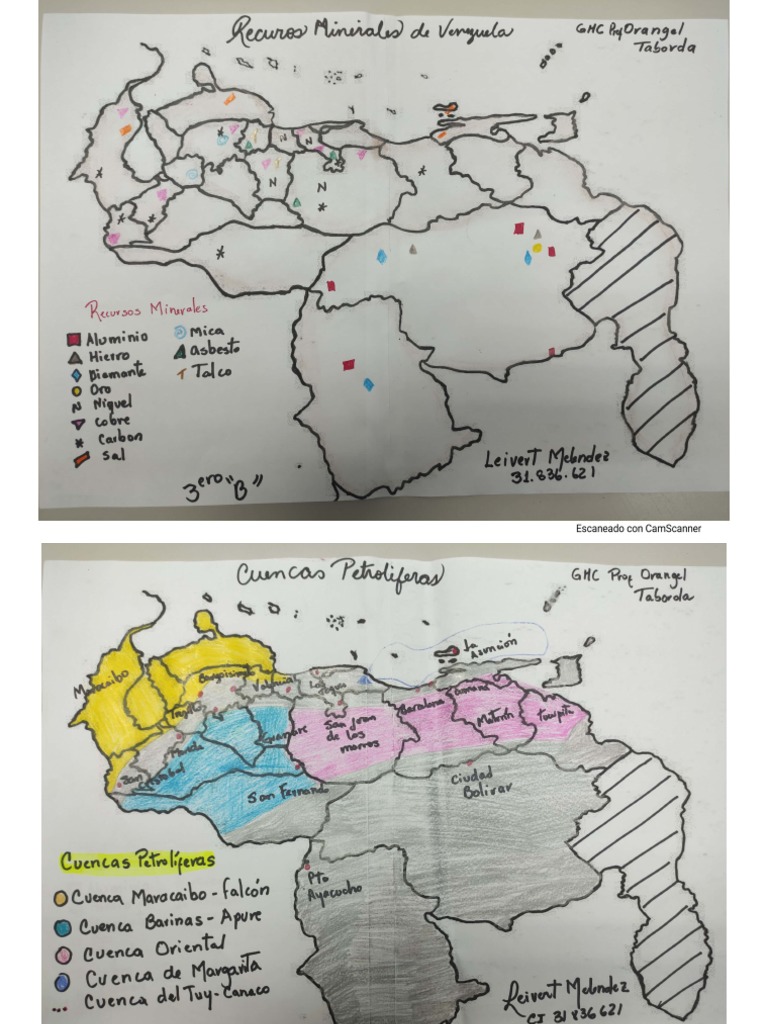 Recuros Minerales de Venezuela
GHC Prof Orangel
Taborda
N
N
N
N
Recursos Minerales
Aluminio
Hierro
Diamante
Oro
N Niquel
Cobre
* Carbon
Sal
Mica
Asbesto
T Talco
3ero "B"
Leivert Meléndez
31.836.621
Escaneado con CamScanner
Cuencas Petroliferas
GHC Prof Orangel
Taborda
La
Asunción
Maracaibo
Barquisimeto
Valencia
Trujillo
Guanare
San Juan
de los
morros
Barcelona
Cumaná
Maturín
Tucupita
San
Cristobal
San Fernando
Ciudad
Bolivar
Pto
Ayacucho
Cuencas Petrolíferas
Cuenca Maracaibo - Falcón
Cuenca Barinas - Apure
Cuenca Oriental
Cuenca de Margarita
Cuenca del Tuy-Cariaco
Leivert Meléndez
CI 31836621